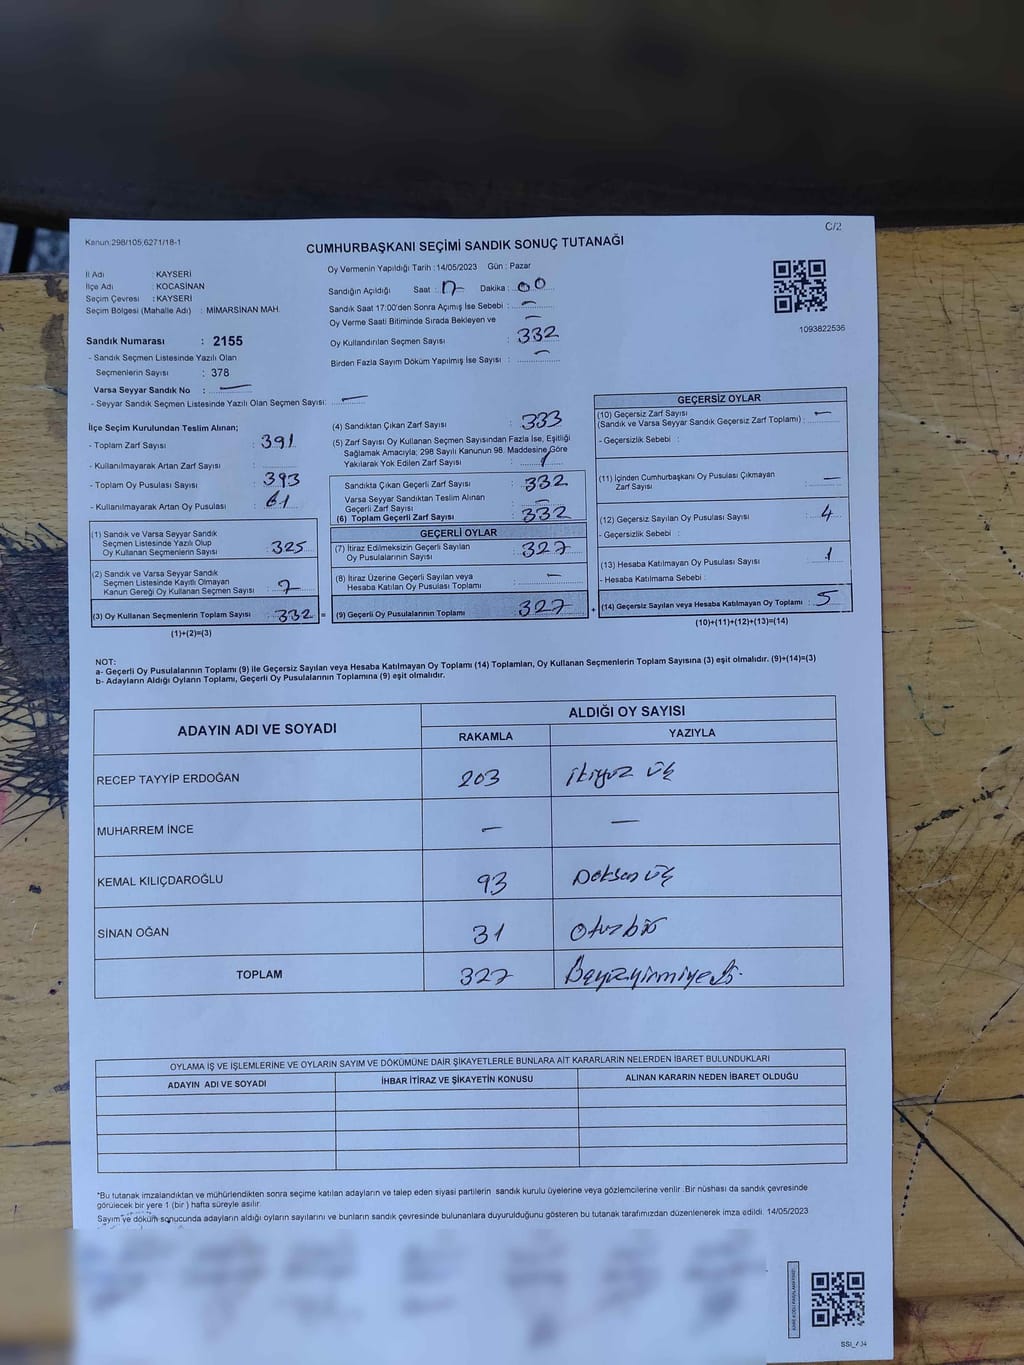 C/2
Kanun:298/105;6271/18-1
CUMHURBAŞKANI SEÇİMİ SANDIK SONUÇ TUTANAĞI
İl Adı : KAYSERİ
İlçe Adı : KOCASİNAN
Seçim Çevresi : KAYSERİ
Seçim Bölgesi (Mahalle Adı) : MİMARSİNAN MAH.
Sandık Numarası : 2155
- Sandık Seçmen Listesinde Yazılı Olan
Seçmenlerin Sayısı : 378
Varsa Seyyar Sandık No : —
- Seyyar Sandık Seçmen Listesinde Yazılı Olan Seçmen Sayısı: —
Oy Vermenin Yapıldığı Tarih :14/05/2023 Gün : Pazar
Sandığın Açıldığı Saat : 17 Dakika : 00
Sandık Saat 17:00'den Sonra Açımış İse Sebebi : —
Oy Verme Saati Bitiminde Sırada Bekleyen ve —
Oy Kullandırılan Seçmen Sayısı : 332
Birden Fazla Sayım Döküm Yapılmış İse Sayısı : —
1093822536
İlçe Seçim Kurulundan Teslim Alınan;
- Toplam Zarf Sayısı : 391
- Kullanılmayarak Artan Zarf Sayısı :
- Toplam Oy Pusulası Sayısı : 393
- Kullanılmayarak Artan Oy Pusulası : 61
(1) Sandık ve Varsa Seyyar Sandık
Seçmen Listesinde Yazılı Olup
Oy Kullanan Seçmenlerin Sayısı : 325
(2) Sandık ve Varsa Seyyar Sandık
Seçmen Listesinde Kayıtlı Olmayan
Kanun Gereği Oy Kullanan Seçmen Sayısı : 7
(3) Oy Kullanan Seçmenlerin Toplam Sayısı : 332 =
(1)+(2)=(3)
(4) Sandıktan Çıkan Zarf Sayısı : 333
(5) Zarf Sayısı Oy Kullanan Seçmen Sayısından Fazla İse, Eşitliği
Sağlamak Amacıyla; 298 Sayılı Kanunun 98. Maddesine Göre
Yakılarak Yok Edilen Zarf Sayısı : 1
Sandıkta Çıkan Geçerli Zarf Sayısı : 332
Varsa Seyyar Sandıktan Teslim Alınan
Geçerli Zarf Sayısı : —
(6) Toplam Geçerli Zarf Sayısı : 332
GEÇERLİ OYLAR
(7) İtiraz Edilmeksizin Geçerli Sayılan
Oy Pusulalarının Sayısı : 327
(8) İtiraz Üzerine Geçerli Sayılan veya
Hesaba Katılan Oy Pusulası Toplamı : —
(9) Geçerli Oy Pusulalarının Toplamı : 327 +
GEÇERSİZ OYLAR
(10) Geçersiz Zarf Sayısı —
(Sandık ve Varsa Seyyar Sandık Geçersiz Zarf Toplamı) :
- Geçersizlik Sebebi :
(11) İçinden Cumhurbaşkanı Oy Pusulası Çıkmayan
Zarf Sayısı : —
(12) Geçersiz Sayılan Oy Pusulası Sayısı : 4
- Geçersizlik Sebebi :
(13) Hesaba Katılmayan Oy Pusulası Sayısı : 1
- Hesaba Katılmama Sebebi :
(14) Geçersiz Sayılan veya Hesaba Katılmayan Oy Toplamı : 5
(10)+(11)+(12)+(13)=(14)
NOT:
a- Geçerli Oy Pusulalarının Toplamı (9) ile Geçersiz Sayılan veya Hesaba Katılmayan Oy Toplamı (14) Toplamları, Oy Kullanan Seçmenlerin Toplam Sayısına (3) eşit olmalıdır. (9)+(14)=(3)
b- Adayların Aldığı Oyların Toplamı, Geçerli Oy Pusulalarının Toplamına (9) eşit olmalıdır.
ADAYIN ADI VE SOYADI ALDIĞI OY SAYISI
RAKAMLA YAZIYLA
RECEP TAYYİP ERDOĞAN 203 ikiyüz üç
MUHARREM İNCE — —
KEMAL KILIÇDAROĞLU 93 Doksan üç
SİNAN OĞAN 31 Otuzbir
TOPLAM 327
OYLAMA İŞ VE İŞLEMLERİNE VE OYLARIN SAYIM VE DÖKÜMÜNE DAİR ŞİKAYETLERLE BUNLARA AİT KARARLARIN NELERDEN İBARET BULUNDUKLARI
ADAYIN ADI VE SOYADI İHBAR İTİRAZ VE ŞİKAYETİN KONUSU ALINAN KARARIN NEDEN İBARET OLDUĞU
*Bu tutanak imzalandıktan ve mühürlendikten sonra seçime katılan adayların ve talep eden siyasi partilerin sandık kurulu üyelerine veya gözlemcilerine verilir. Bir nüshası da sandık çevresinde
görülecek bir yere 1 (bir ) hafta süreyle asılır.
Sayım ve döküm sonucunda adayların aldığı oyların sayılarını ve bunların sandık çevresinde bulunanlara duyurulduğunu gösteren bu tutanak tarafımızdan düzenlenerek imza edildi. 14/05/2023